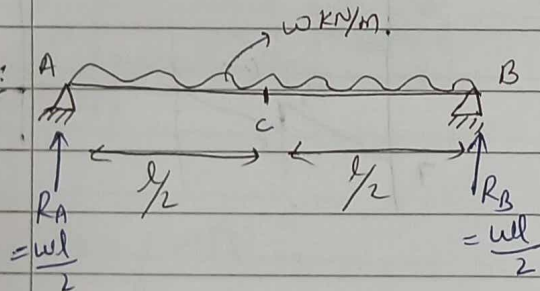 ω KN/m.
A
B
C
l/2
l/2
RA
= wl/2
RB
= wl/2